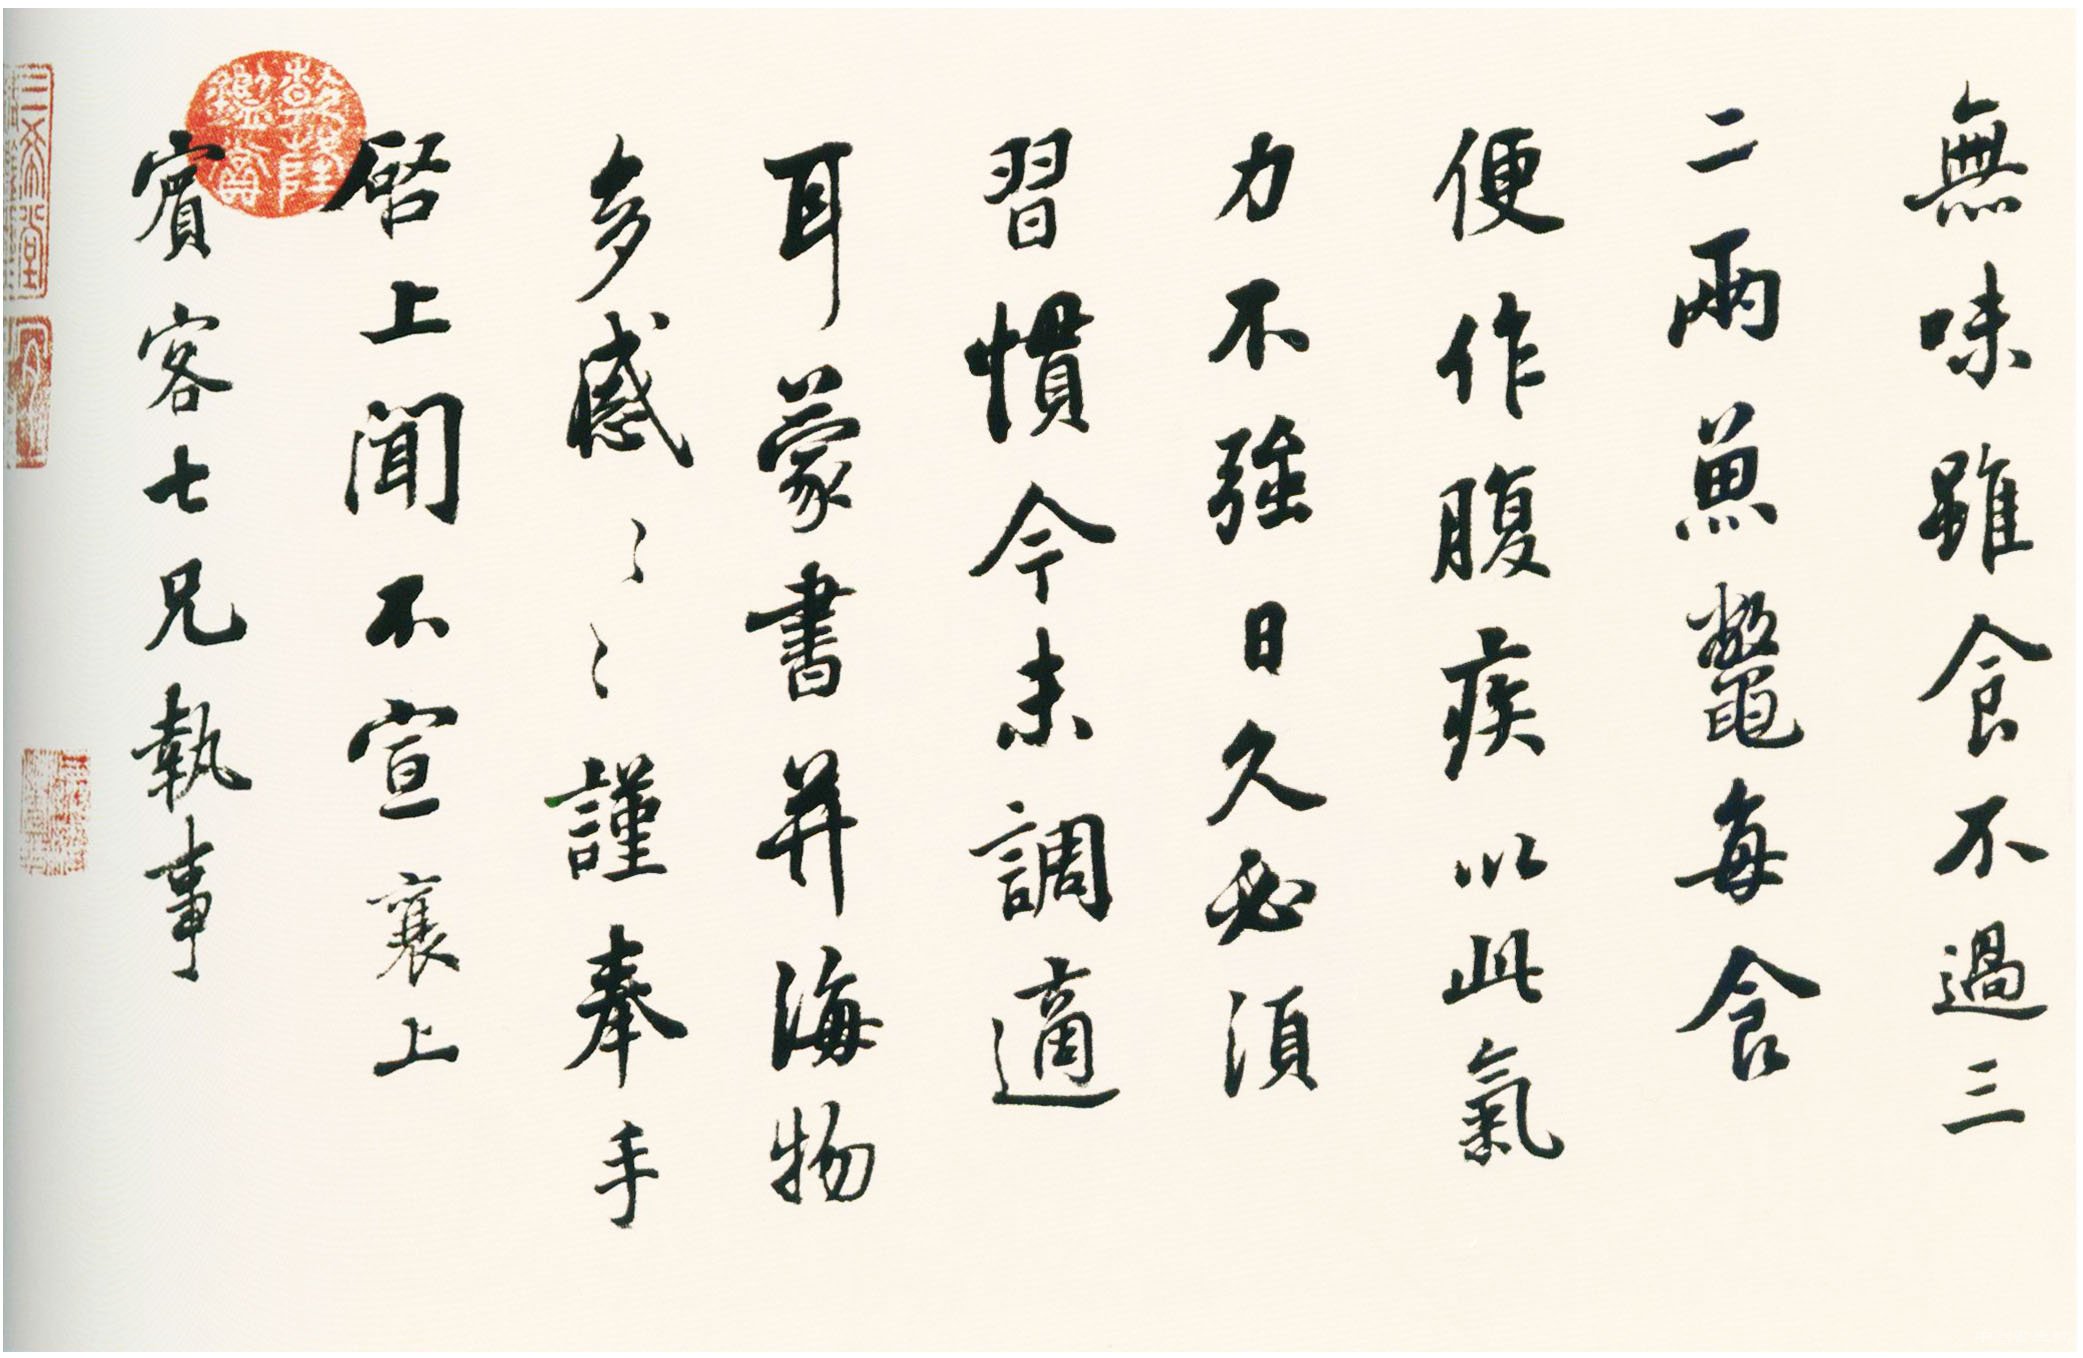 無味雖食不過三
二兩魚鼈每食
便作腹疾以此氣
力不強日久必須
習慣今未調適
耳蒙書并海物
多感〻〻謹奉手
啓上聞不宣襄上
賓客七兄執事
乾隆鑑賞
三希堂